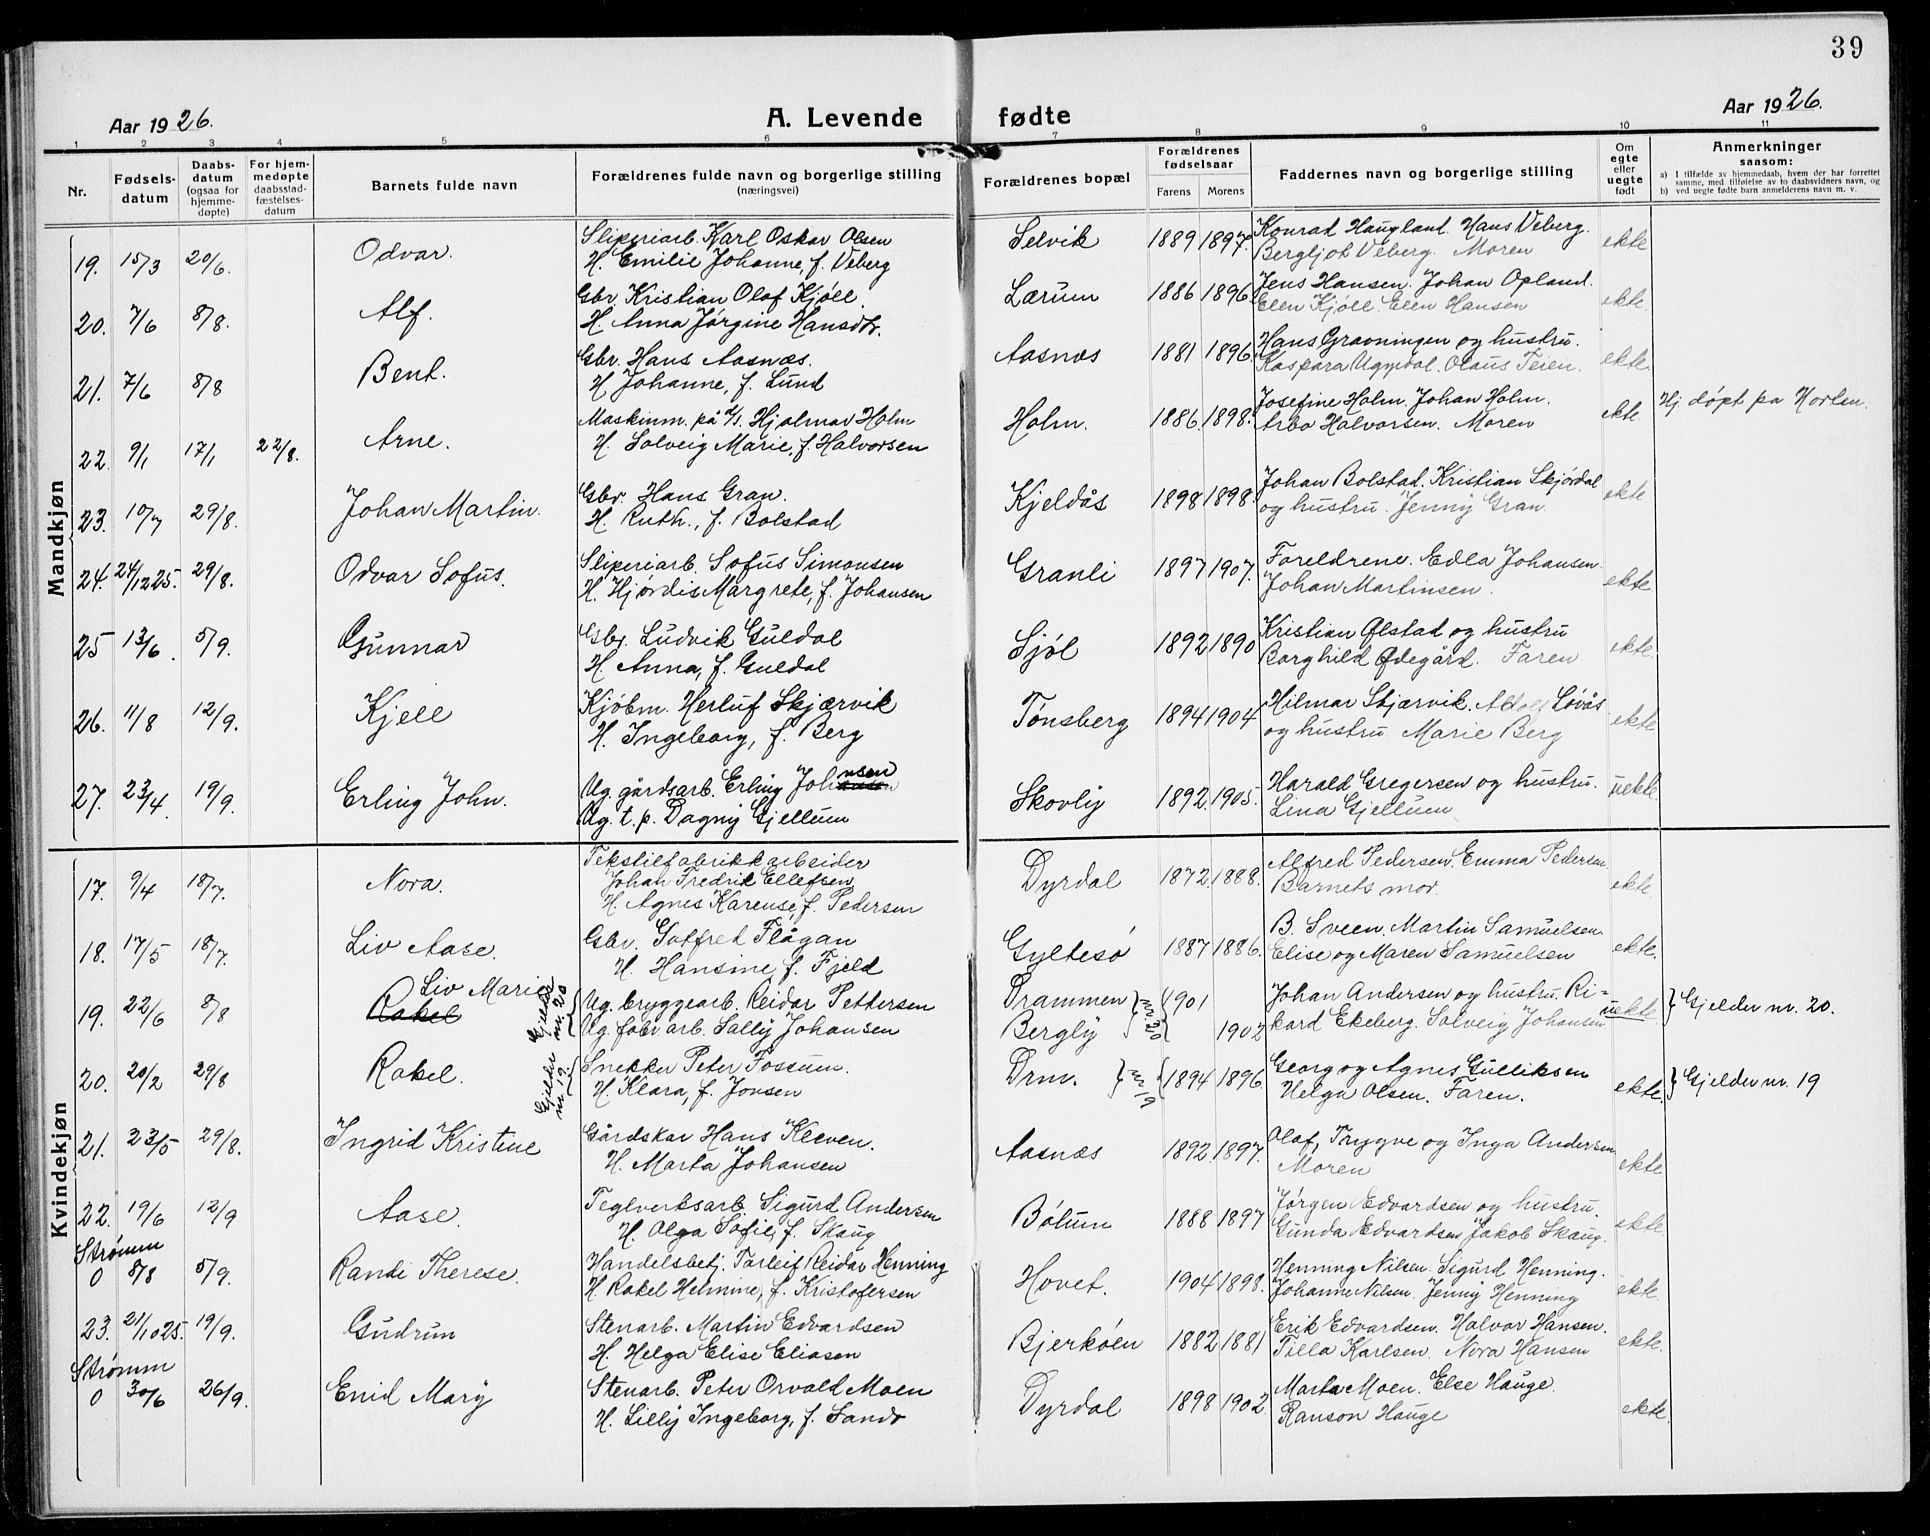 39
Aar 1926.
A. Levende fødte
Aar 1926.
1 2 3 4 5 6 7 8 9 10 11
Nr.
Fødsels-
datum
Daabs-
datum
(ogsaa for
hjemme-
døpte)
For hjem-
medøpte
daabsstad-
fæstelses-
datum
Barnets fulde navn
Forældrenes fulde navn og borgerlige stilling
(næringsvei)
Forældrenes bopæl
Forældrenes
fødselsaar
Farens Morens
Faddernes navn og borgerlige stilling
Om
egte
eller
uegte
født
Anmerkninger
saasom:
a) I tilfælde av hjemmedaab, hvem der har forrettet
samme, med tilføielse av to daabsvidners navn, og
b) ved uegte fødte barn anmelderens navn m. v.
Mandkjøn
19. 15/3 20/6. Odvar. Sliperiarb. Karl Oskar Olsen Selvik 1889 1897. Konrad Haugland. Hans Veberg. ekte
H. Emilie Johanne, f. Veberg Bergljot Veberg. Moren
20. 7/6 8/8. Alf. Gbr. Kristian Olaf Kjøll. Lærum 1886 1896 Jens Hansen. Johan Opland. ekte.
H. Anna Jørgine Hansdtr. Elen Kjøll. Elen Hansen
21. 7/6 8/8 Bent. Gbr. Hans Aasnæs. Aasnæs 1881 1896 Hans Gravningen og hustru. ekte.
H. Johanne, f. Lund Kaspara Ugypdal. Olaus Teien.
22. 9/1 17/1 22/8. Arne. Maskinm. på Hjalmar Holm Holm. 1886. 1898. Josefine Holm. Johan Holm. ekte. Hj døpt pa Horten.
H. Solveig Marie, f. Halvorsen Arbo Halvorsen. Moren
23. 10/7 29/8. Johan Martin. Gbr. Hans Gran. Kjeldås 1898 1898. Johan Bolstad. Kristian Skjørdal ekte
H. Ruth., f. Bolstad og hustru. Jenny Gran.
24. 24/12 25. 29/8. Odvar Sofus. Sliperiarb. Sofus Simonsen Granli 1897 1907. Foreldrene. Edla Johansen. ekte
H. Hjørdis Margrete, f. Johansen Johan Martinsen.
25 13/6. 5/9. Gunnar Gbr. Ludvik Guldal Sjøl 1892 1890 Kristian Ølstad og hustru ekte.
H Anna, f. Guldal Borghild Ødegård. Faren
26. 11/8 12/9. Kjell Kjøbm. Herluf Skjærvik Tønsberg 1894 1904 Hilmar Skjærvik. Adolf Løvås ekte
H. Ingeborg, f. Berg og hustru Marie Berg
27. 23/4. 19/9. Erling John. Ug. gårdsarb. Erling Johnsen Skovly 1892. 1905. Harald Gregersen og hustru. uekte.
Ug. t. p. Dagny Gjellum Lina Gjellum
Kvindekjøn
17. 9/4 18/7. Nora. Tekstilfabrikkarbeider Dyrdal 1872 1888. Alfred Pedersen. Emma Pedersen ekte
Johan Fredrik Ellefsen Barnets mor.
H. Agnes Karense, f. Pedersen
18. 17/5 18/7. Liv Aase. Gbr. Gotfred Flågan Gyltesø 1887 1886. B. Sveen. Martin Samuelsen ekte.
H. Hansine, f. Fjeld Elise og Maren Samuelsen
19. 22/6 8/8 Liv Marie Gjelder nr. 20 Ug. bryggearb. Reidar Pettersen Drammen nr. 20 1901 Johan Andersen og hustru. Ri- uekte Gjelder nr. 20.
Rakel Ug fabr arb. Sally Johansen Bergly 1902 kard Ekeberg. Solveig Johansen
20. 20/2 29/8 Rakel. Gjelder nr. 19. Snekker Peter Fossum. Drm. nr 19 1894 1896 Georg og Agnes Gulliksen ekte. Gjelder nr. 19
H. Klara, f. Jonsen Helga Olsen. Faren.
21. 23/5 29/8. Ingrid Kristine Gårdskar Hans Kleven. Aasnæs 1892. 1897. Olaf, Trygve og Inga Andersen ekte
H. Marta Johansen Moren
22. 19/6 12/9 Aase. Teglverksarb. Sigurd Andersen Bølum 1888 1897 Jørgen Edvardsen og hustru. ekte.
H. Olga Sofie, f. Skaug Gunda Edvardsen Jakob Skaug.
Strømm
0 8/8 5/9. Randi Therese. Handelsbetj. Torleif Reidar Henning Hovet. 1904 1898. Henning Nilsen. Sigurd Henning. ekte.
H. Rakel Helmine, f. Kristofersen Johanne Nilsen. Jenny Henning
23. 21/10 25. 19/9. Gudrun Stenarb. Martin Edvardsen Bjerkøen 1882 1881 Erik Edvardsen. Halvor Hansen. ekte.
H. Helga Elise Eliasen Tilla Karlsen. Nora Hansen
Strømm
0 30/6 26/9. Enid Mary Stenarb. Peter Orvald Moen Dyrdal 1898 1902 Marta Moen. Else Hauge. ekte.
H. Lilly Ingeborg, f. Sando Ranson Hauge